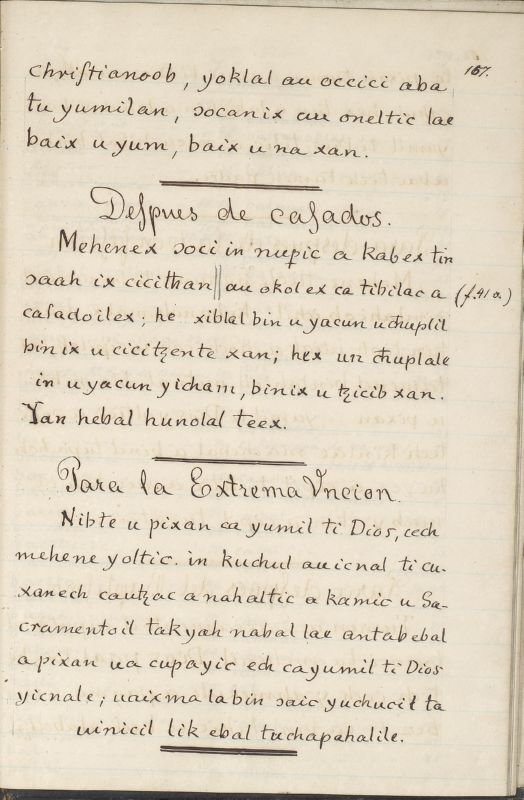 157.
chriſtianoob, yoklal au occici aba
tu yumilan, ɔocanix au oneltic lae
baix u yum, baix u na xan.
Deſpues de caſados.
Mehenex ɔoci in nupic a kabex tin
ɔaah ix cicithan || au okol ex ca tibilac a (f. 41 a.)
caſadoilex; he xiblal bin u yacun uchuplil
binix u cicitzente xan; hex un chuplale
in u yacun yicham, binix u tzicib xan.
Yan hebal hunolal teex.
Para la Extrema Vncion.
Nibte u pixan ca yumil ti Dios, cech
mehene yoltic. in kuchul auicnal ti cu-
xanech cautzac a nahaltic a kamic u Sa-
cramentoil takyah nabal lae antabebal
a pixan ua cupayic ech cayumil ti Dios
yicnale; uaixma la bin ɔaic yuchucil ta
uinicil lik ebal tuchapahalile.